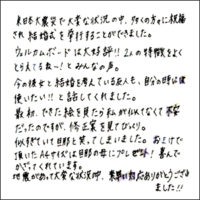 東日本大震災で大変な状況の中、多くの方々に祝福
され結婚式を挙行することができました。
ウェルカムボードは大好評!! 2人の特徴をよく
とらえてるね〜!とみんなの声。
今の彼女と結婚を考えている友人も、自分の時は
使いたい!!と話してくれました。
最初、できた絵を見たら私が似てなくて不安
だったのですが、修正案を見てびっくり。
似すぎていて目を疑ってしまいました。おまけで
頂いたA4サイズは旦那の母にプレゼント!喜んで
かざってくれています。
地震があって大変な状況の中、対応ありがとうござ
いました!!